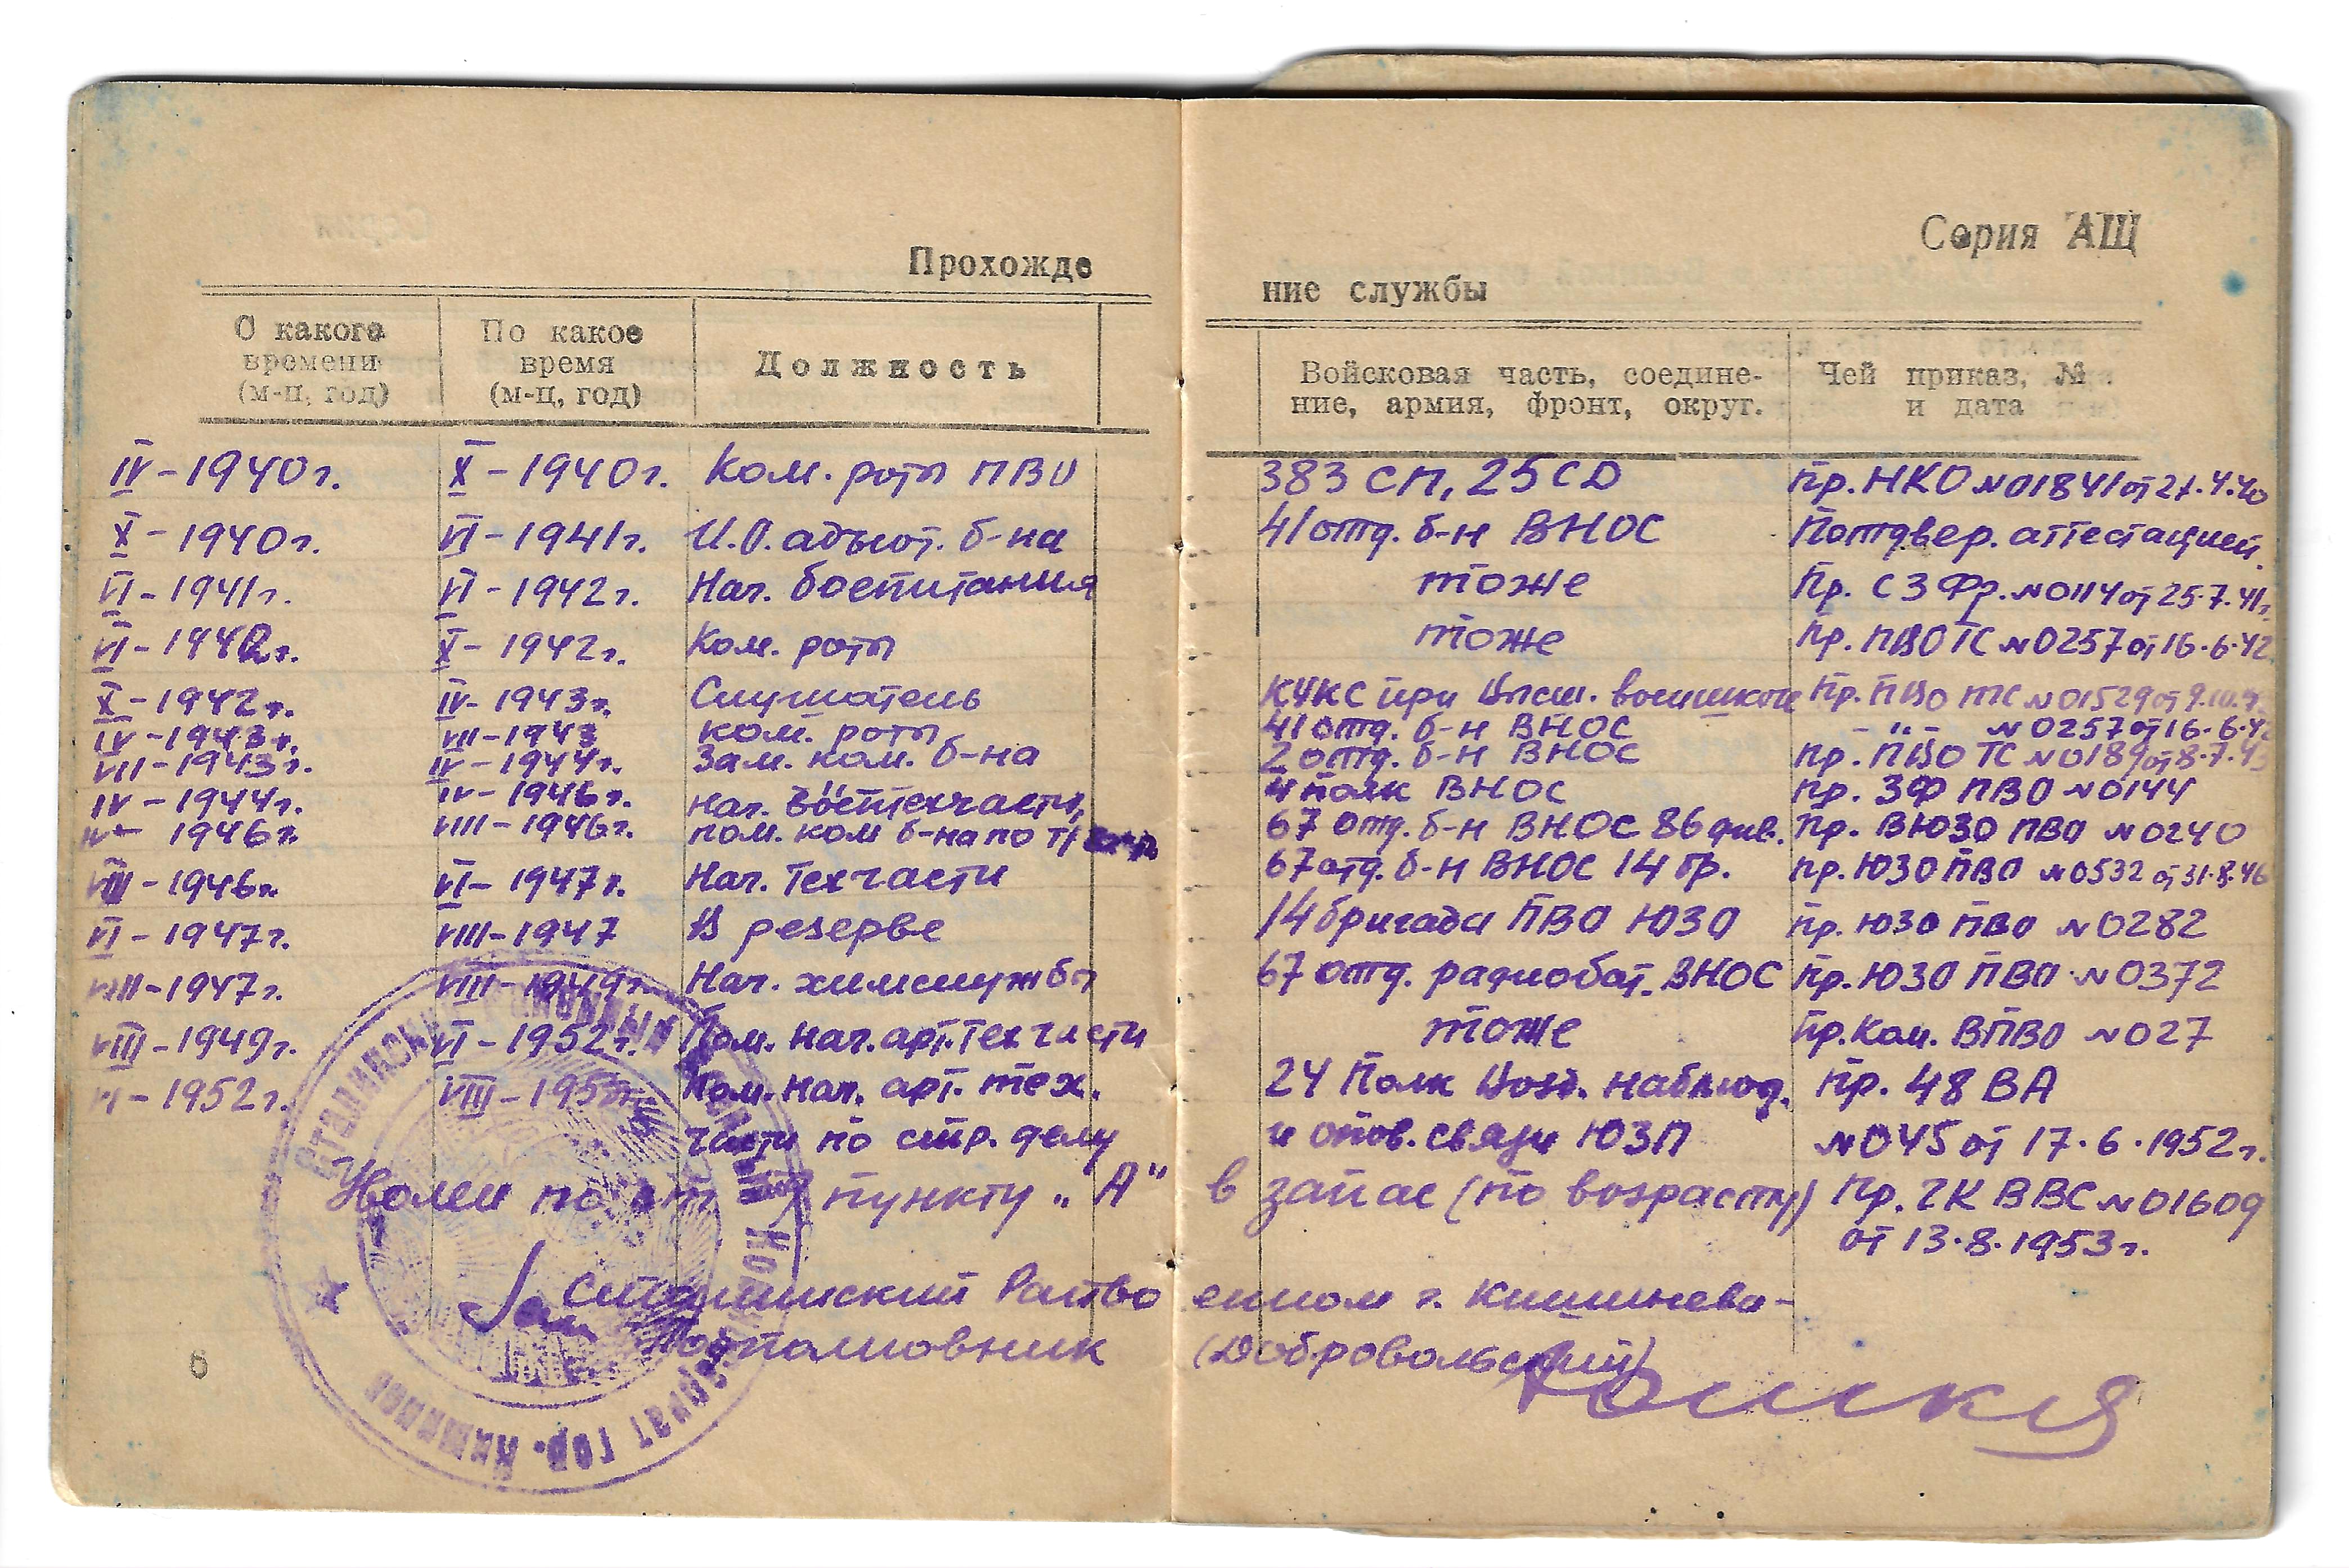 Серия АЩ
Прохожде
ние службы
С какого времени (м-ц, год)
По какое время (м-ц, год)
Должность
Войсковая часть, соедине-
ние, армия, фронт, округ.
Чей приказ, №
и дата
IV-1940г. X-1940г. Ком. роты ПВО 383 СП, 25 СД Пр. НКО №01841 от 27.4.40
X-1940г. VI-1941г. И.О. адъют. б-на 41 отд. б-н ВНОС Потдвер. аттестацией.
VI-1941г. VI-1942г. Нач. боепитания тоже Пр. СЗФр. №0114 от 25.7.41г.
VI-1942г. X-1942г. Ком. роты тоже Пр. ПВО ТС №0257 от 16.6.42
X-1942г. IV-1943г. Слушатель КУКС при Высш. Пр. ПВО ТС №01529 от
IV-1943г. VII-1943 ком. роты 41 отд. б-н ВНОС -"- №0257 от 16.6.42
VII-1943г. IV-1944г. Зам. ком. б-на 2 отд. б-н ВНОС Пр. ПВО ТС №0189 от 8.7.43
IV-1944г. IV-1946г. нач. 4 полк ВНОС Пр. ЗФ ПВО №0144
IV-1946г. VIII-1946г. пом. ком б-на по т/ 67 отд. б-н ВНОС 86 див. Пр. ВЮЗО ПВО №0240
VIII-1946г. VI-1947г. Нач. Техчасти 67 отд. б-н ВНОС 14 бр. Пр. ЮЗО ПВО №0532 от 31.8.46
VI-1947г. VIII-1947 В резерве 14 бригада ПВО ЮЗО Пр. ЮЗО ПВО №0282
VIII-1947г. VIII-1949г. Нач. химслужбы 67 отд. радиобат. ВНОС Пр. ЮЗО ПВО №0372
VIII-1949г. VI-1952г. Пом. нач. арт. Тех части тоже Пр. Ком. ВПВО №027
VI-1952г. VIII-1953г. Пом. нач. арт. тех. 24 Полк Возд. наблюд. Пр. 48 ВА
части по стр. делу и опов. связи ЮЗП №045 от 17.6.1952г.
Уволен по ст. пункту „А" в запас (по возрасту) Пр. ГК ВВС №01609
от 13.8.1953г.
Сталинский Райво енком г. Кишинева-
Подполковник (Добровольский)
6
Сталинский районный военный комиссариат гор. Кишинев